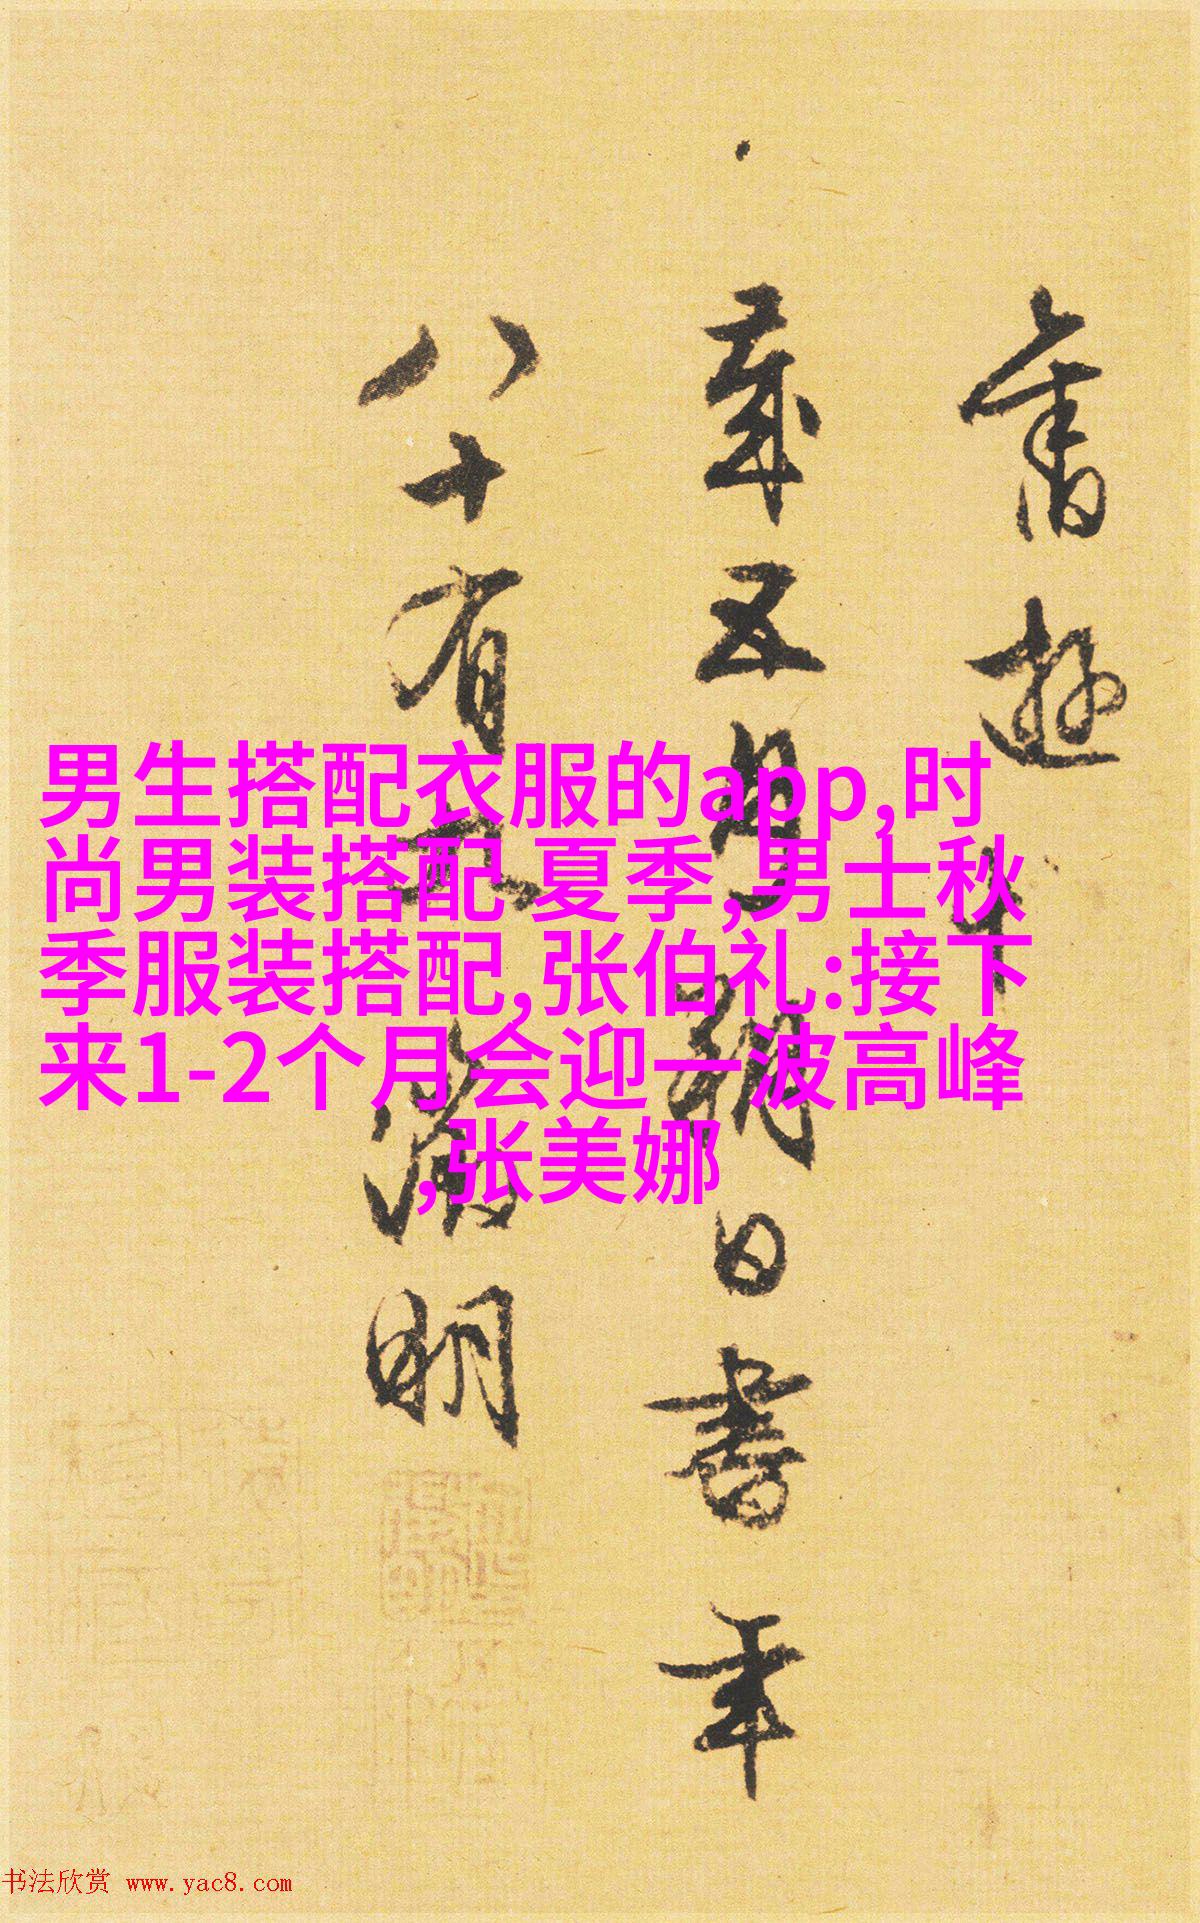 舊遊
歲五月朔日書年
八十有
徵明
男生搭配衣服的app,时
尚男装搭配 夏季,男士秋
季服装搭配,张伯礼:接下
来1-2个月会迎一波高峰
,张美娜
书法欣赏 www.yac8.com